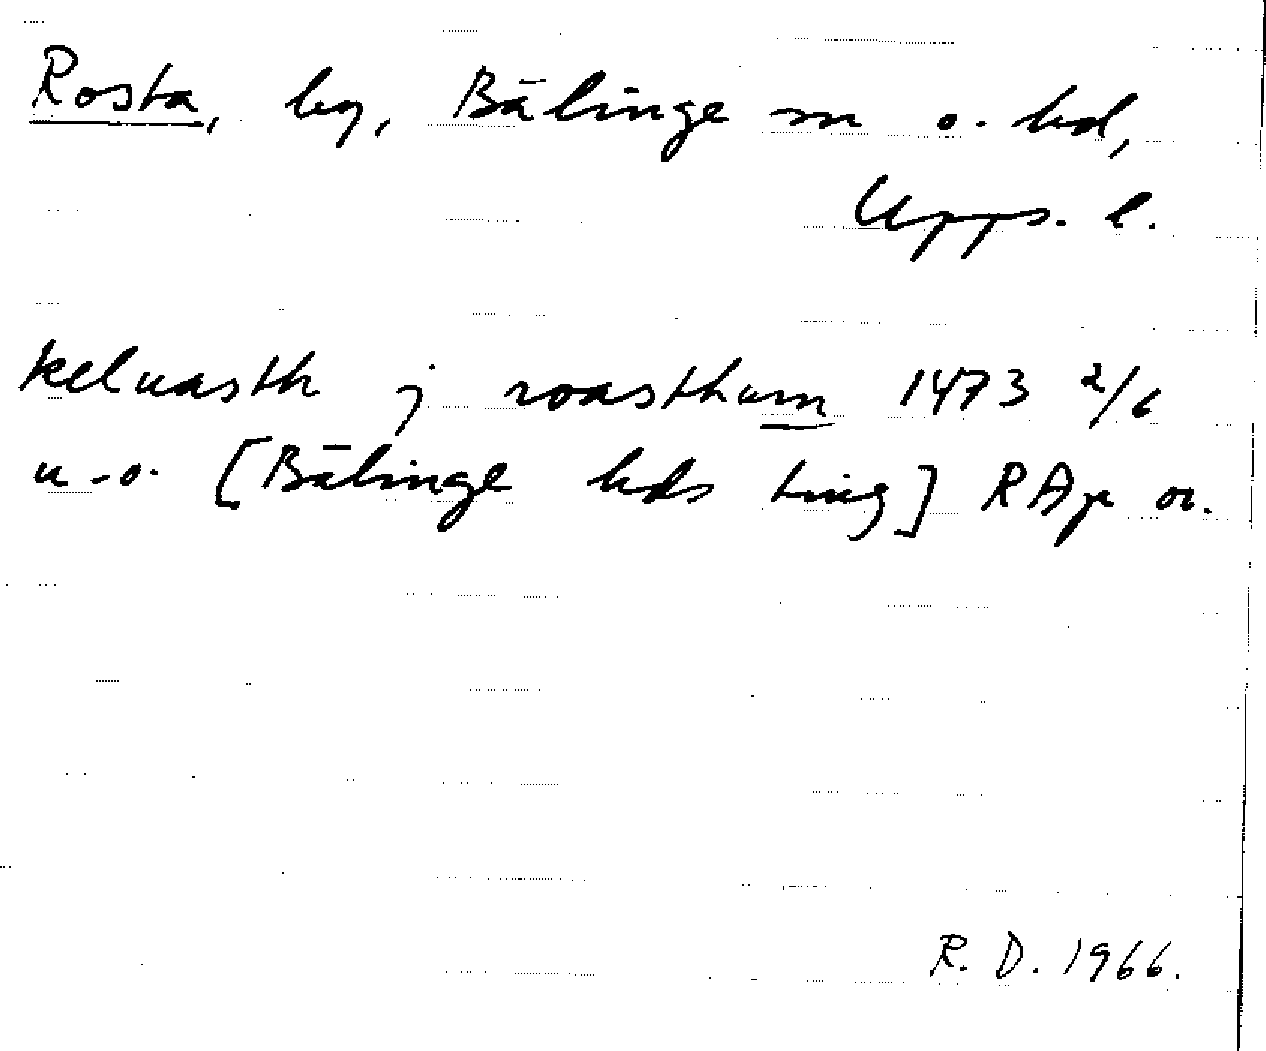 Rosta, by, Bälinge sn o. hd,
Upps. l.
keluasth j roasthum 1473 2/6
u.o. [Bälinge hds ting] RAp or.
R. D. 1966.